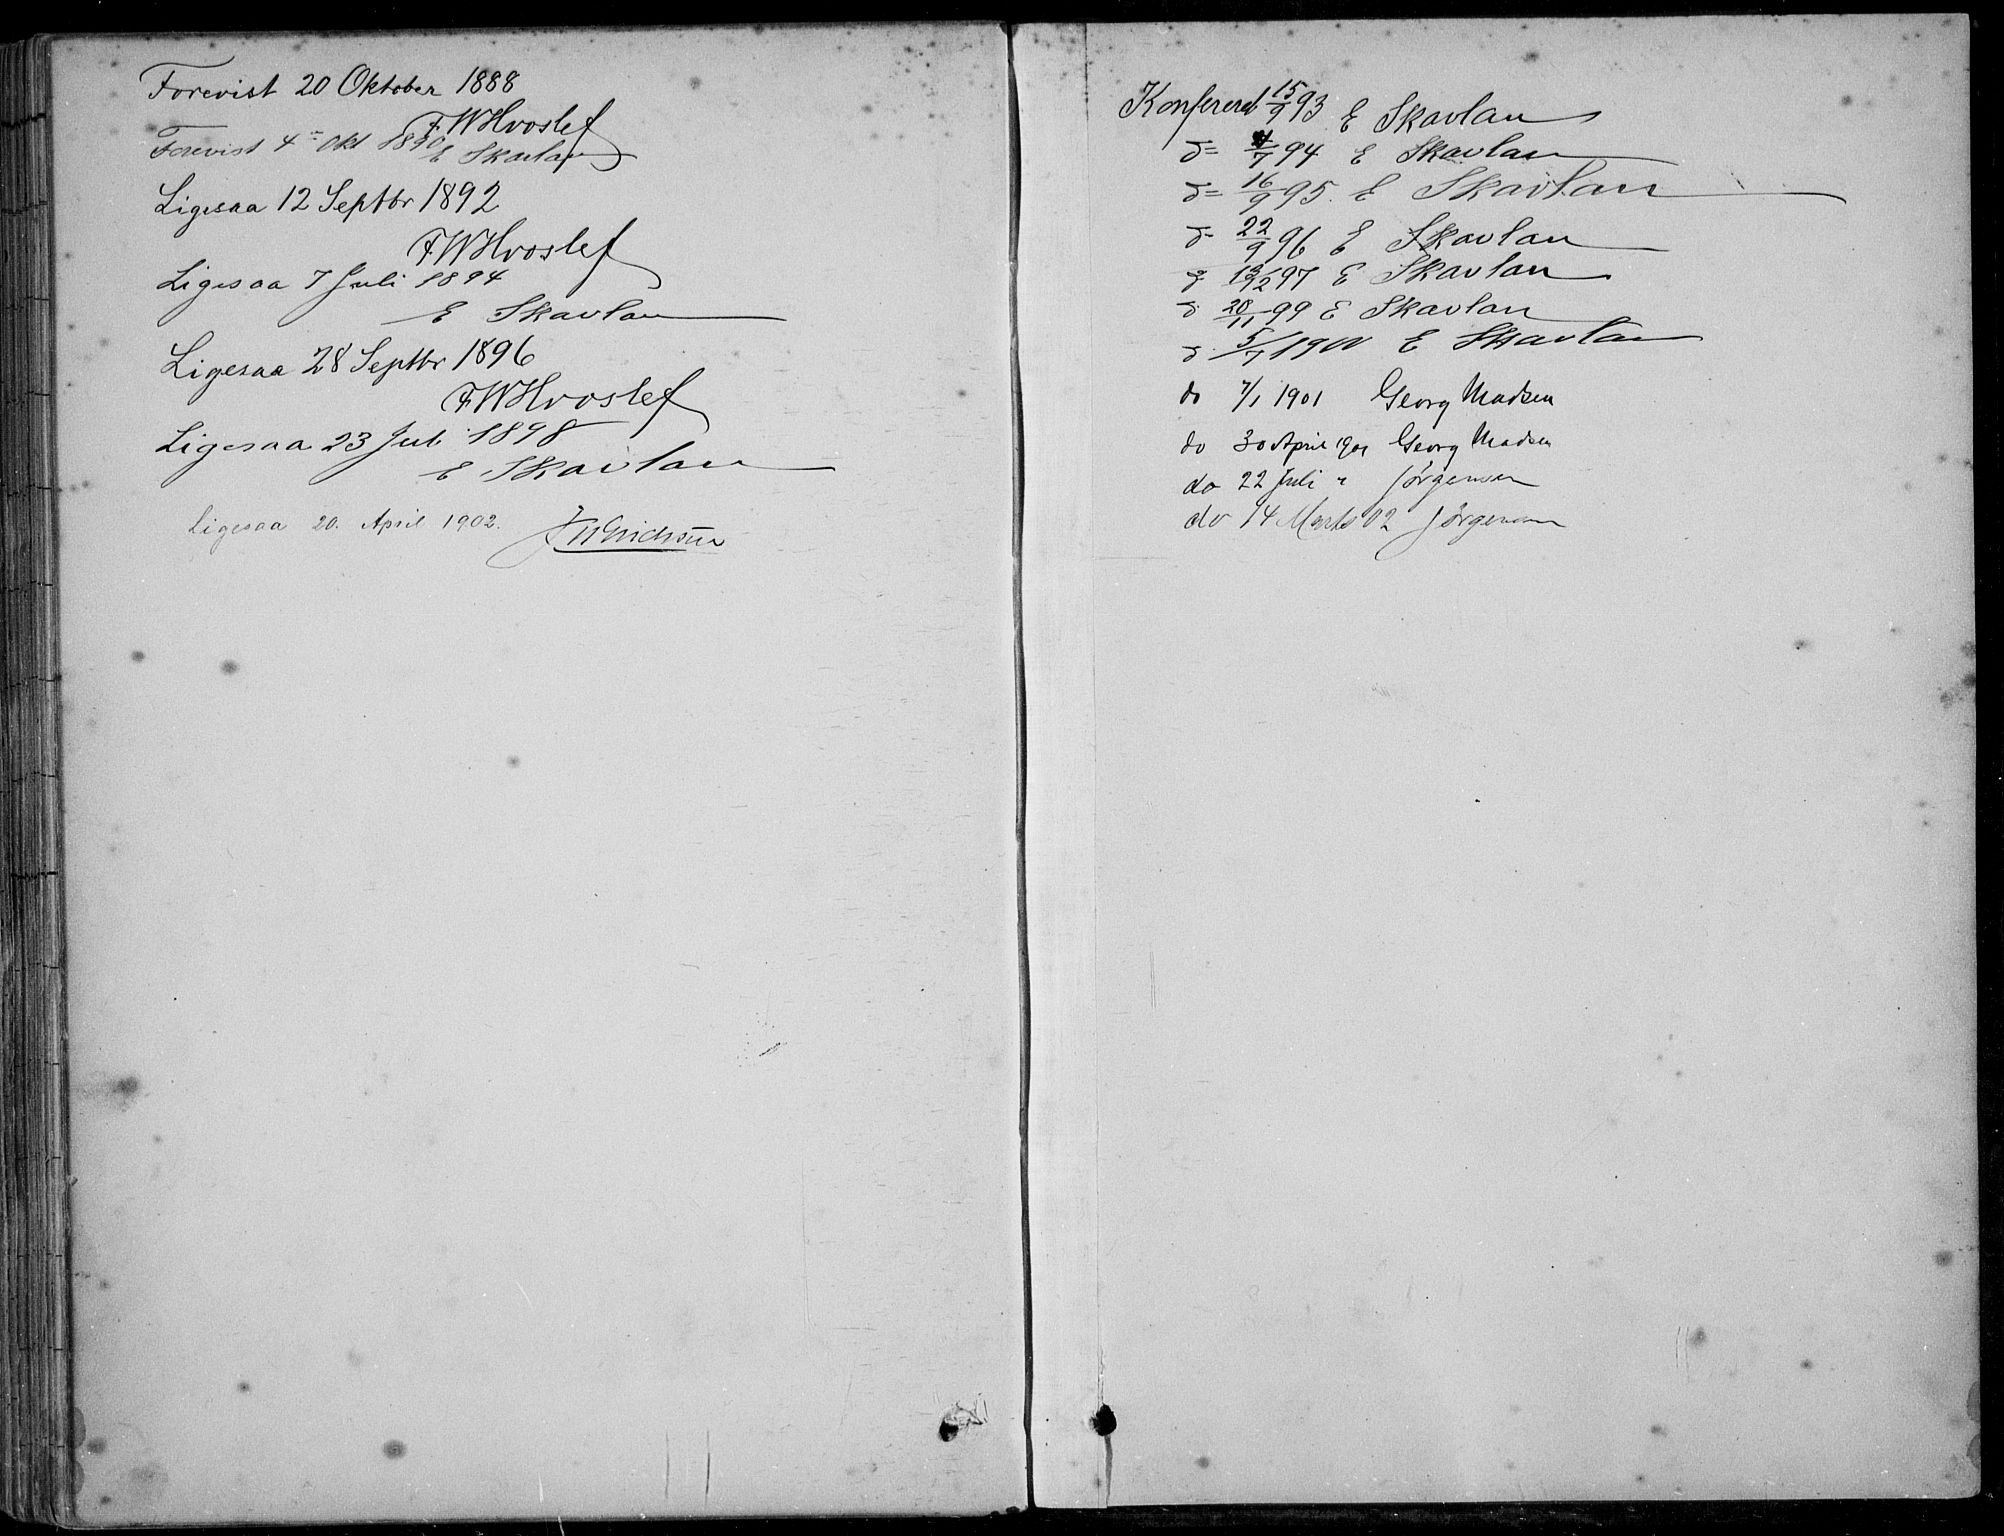 Forevist 20 Oktober 1888
FWHvoslef
Forevist 4 Okt 1890 E Skavlan
Ligesaa 12 Septbr 1892
FWHvoslef
Ligesaa 7 Juli 1894
E Skavlan
Ligesaa 28 Septbr 1896
FWHvoslef
Ligesaa 23 Juli 1898
E Skavlan
Ligesaa 20. April 1902.
Konfereret 15/9 93 E Skavlan
do 4/7 94 E Skavlan
do 16/9 95. E Skavlan
do 22/9 96 E Skavlan
do 97 E Skavlan
do 20/11 99 E Skavlan
do 5/7 1900 E Skavlan
do 7/1 1901 Georg Madsen
do 30 April 1901 Georg Madsen
do 22 Juli " Jørgensen
do 14 Marts 02 Jørgensen